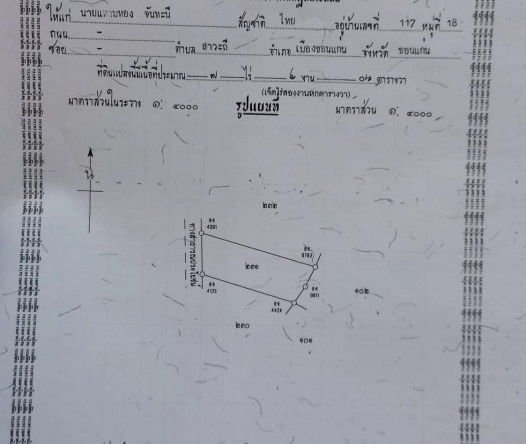 ให้แก่ นาย ทอง จันทะนี สัญชาติ ไทย อยู่บ้านเลขที่ 117 หมู่ที่ 18
ถนน -
ซอย - ตำบล สาวะถี อำเภอ เมืองขอนแก่น จังหวัด ขอนแก่น
ที่ดินแปลงนี้มีเนื้อที่ประมาณ ๗ ไร่ ๒ งาน ๐๖ ตารางวา
(เจ็ดไร่สองงานหกตารางวา)
มาตราส่วนในระวาง ๑: ๔๐๐๐ รูปแผนที่ มาตราส่วน ๑: ๔๐๐๐
น
๒๓๒
4091
8783
๒๓๑
๑๐๒
4135
9811
4424
๒๓๐
๑๐๑
ทางสาธารณประโยชน์